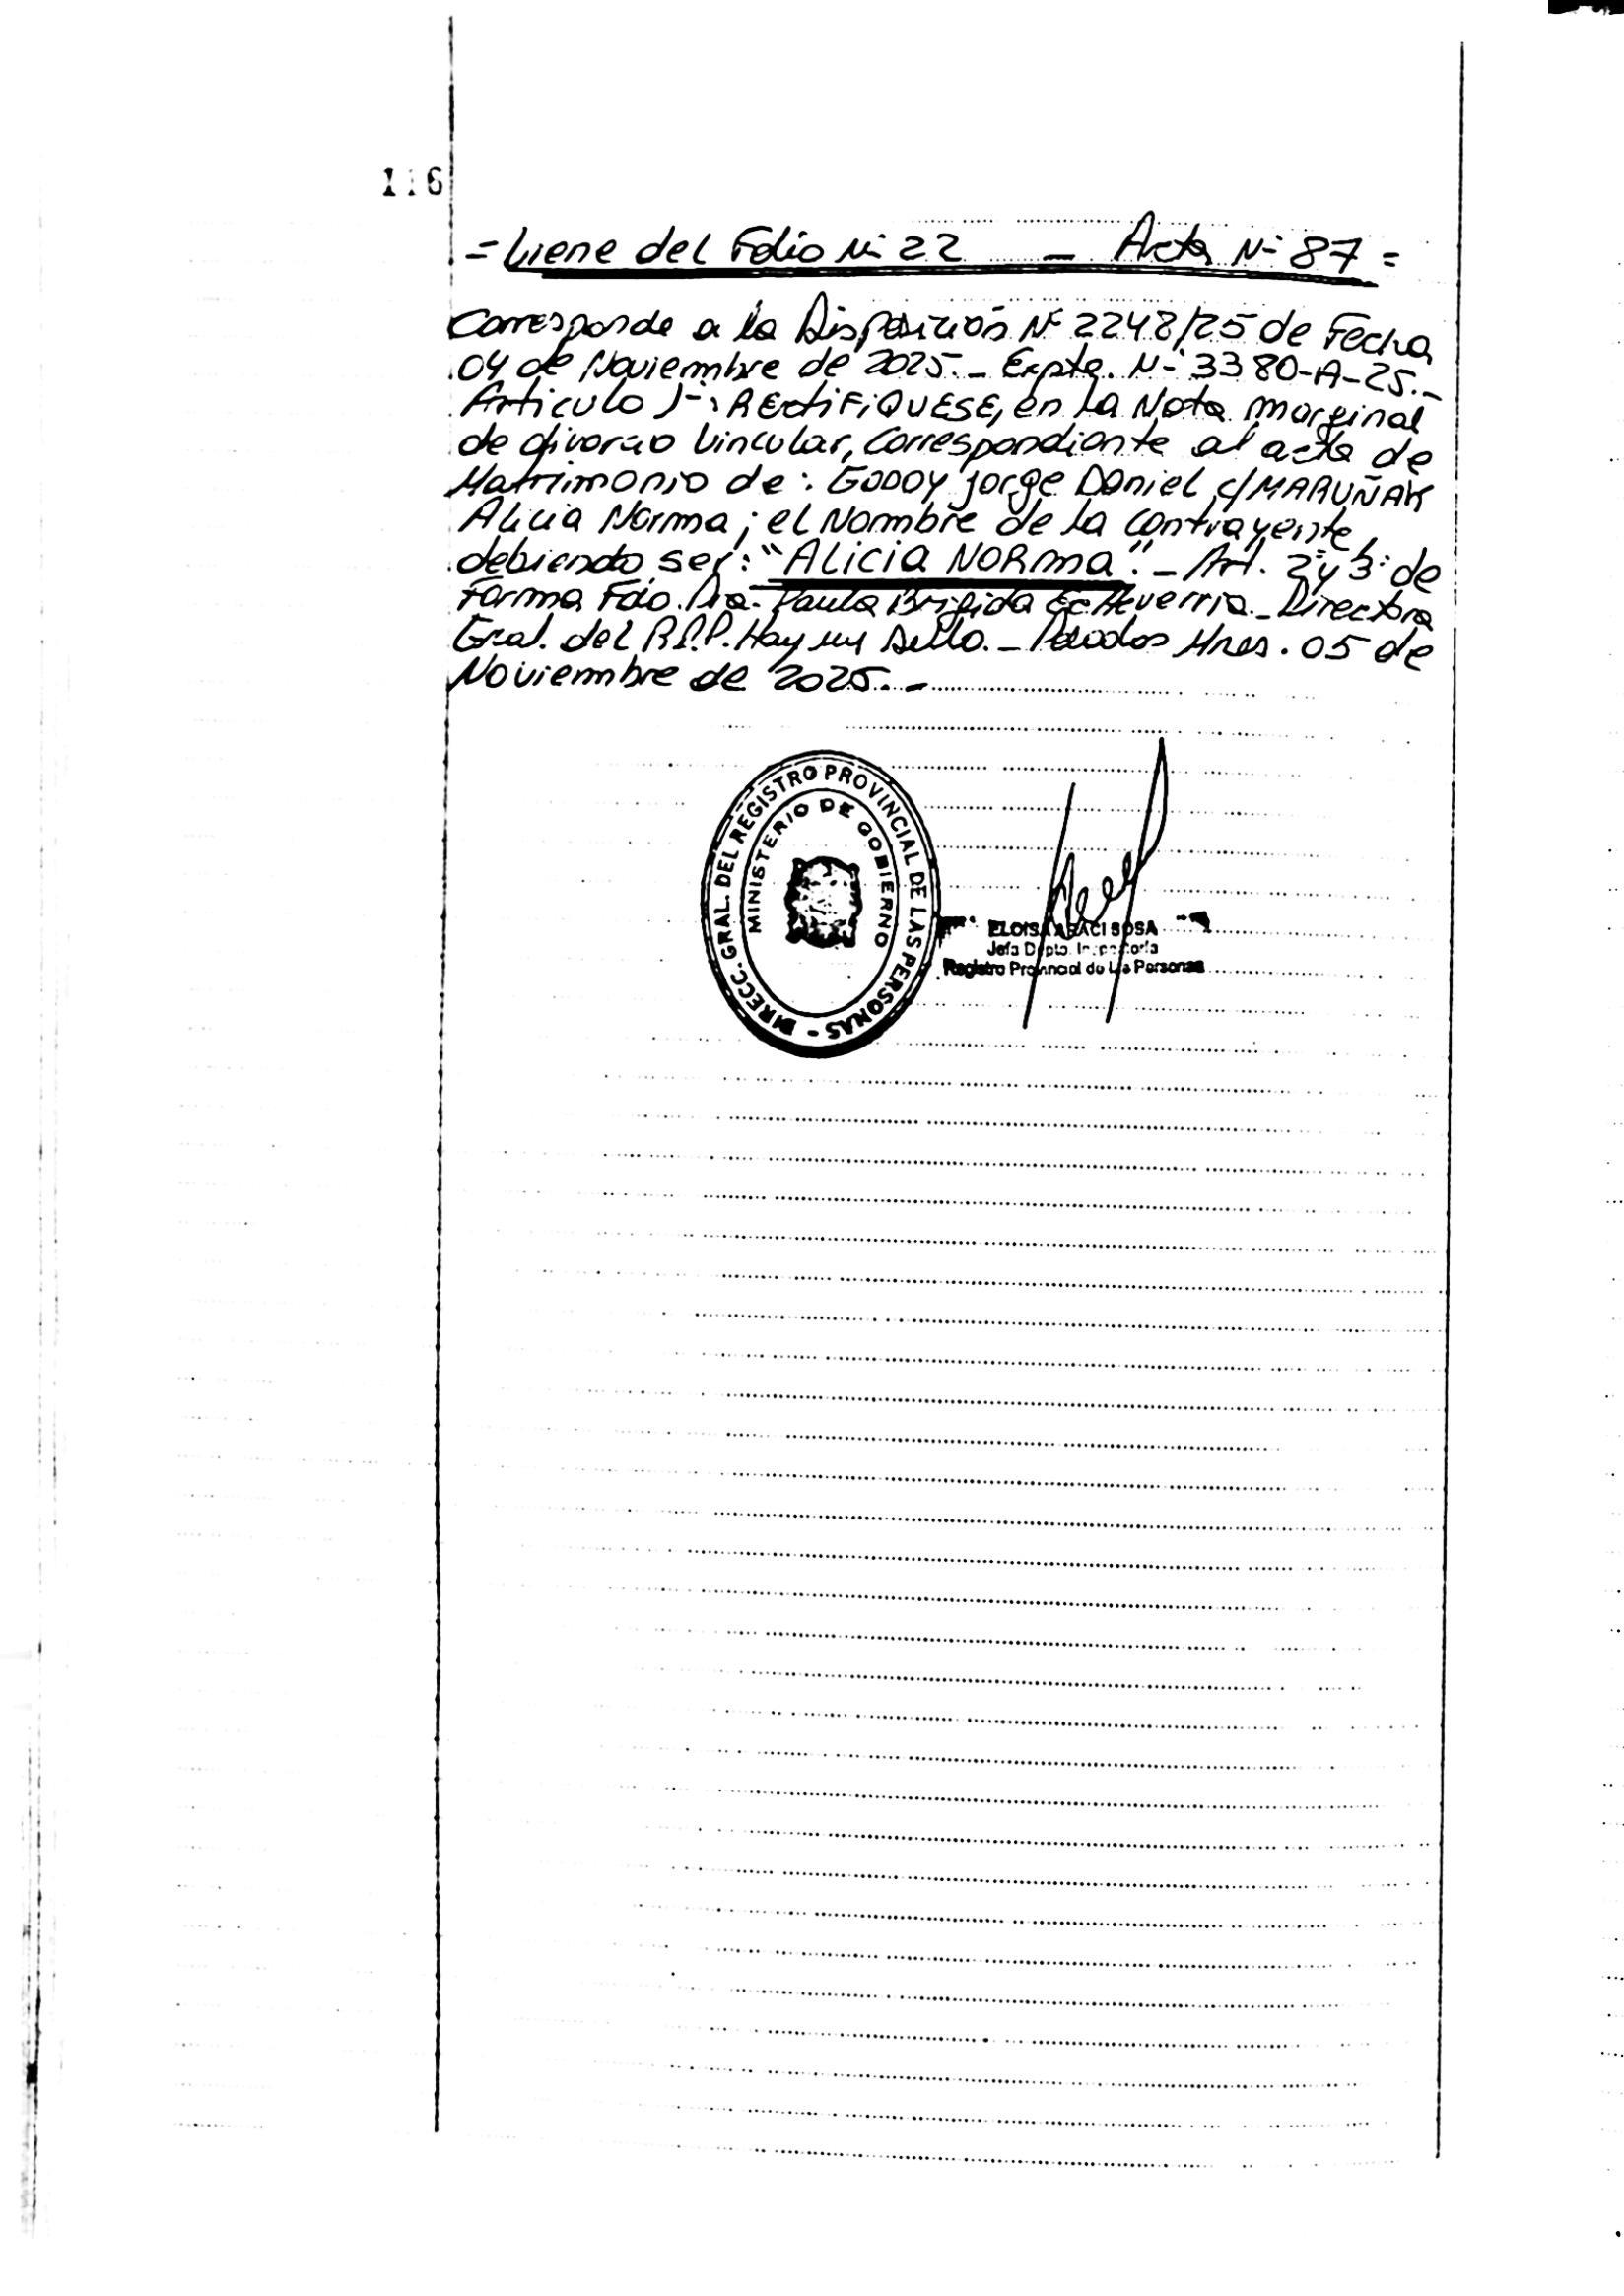 116
= Viene del Folio Nº 22 _ Acta Nº 87 =
Corresponde a la Disposición Nº 2248/25 de Fecha
04 de Noviembre de 2025._ Expte. Nº 3380-A-25._
Articulo 1º: RECtiFiQUESE, en la Nota marginal
de divorcio Vincular, Correspondiente al acta de
Matrimonio de: GODOY Jorge Daniel c/MARUÑAK
Alicia Norma; el Nombre de la Contrayente,
debiendo ser: "ALICIA NORMA"._ Art. 2º y 3º de
Forma Fdo. Dra. Paula Brigida Echeverria_Directora
Gral. del R.P.P. Hay un Sello._ Posadas Mnes. 05 de
Noviembre de 2025._
DIRECC. GRAL. DEL REGISTRO PROVINCIAL DE LAS PERSONAS -
MINISTERIO DE GOBIERNO
ELOISA ARACI SOSA
Jefa Dpto. Inspectoría
Registro Provincial de las Personas